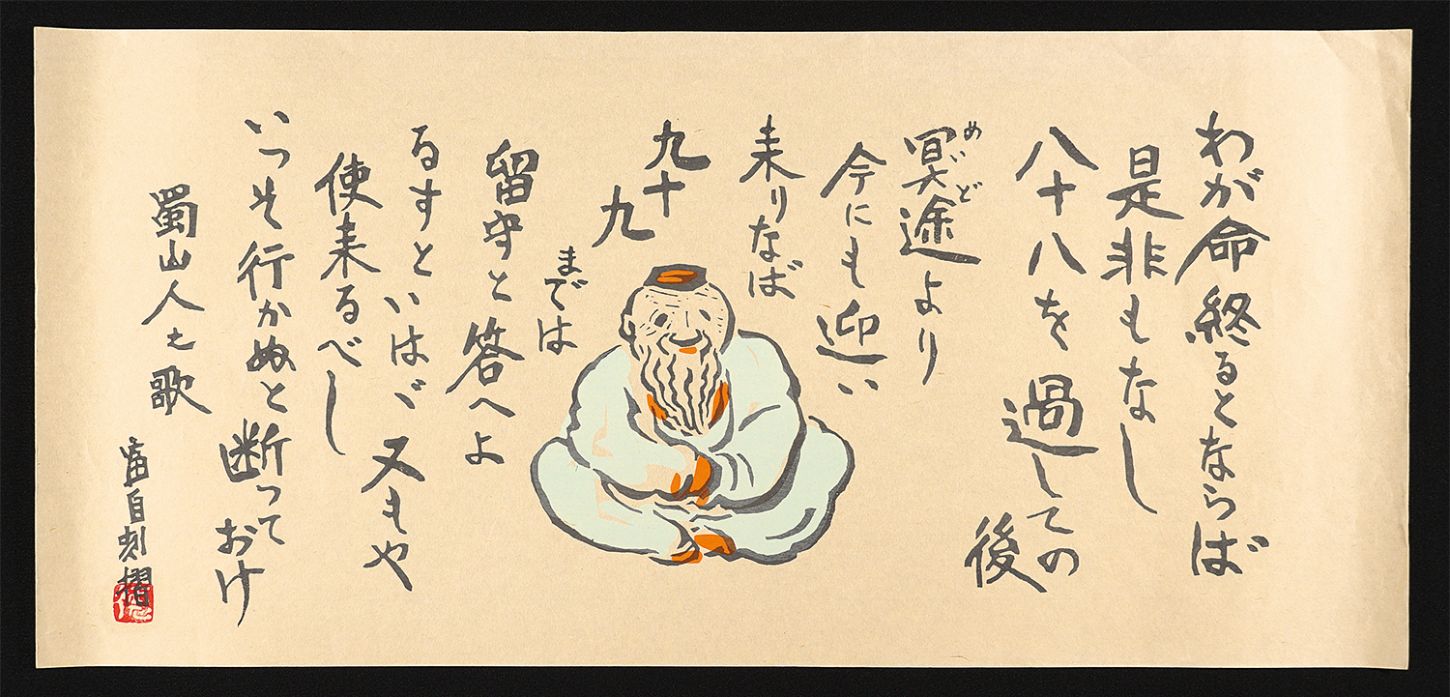 わが命終るとならば
是非もなし
八十八を過しての
後
冥途より
めいど
今にも迎い
来りなば
九十
九
までは
留守と答へよ
るすといはゞ又もや
使来るべし
いっそ行かぬと断って
おけ
蜀山人之歌
富自刻摺